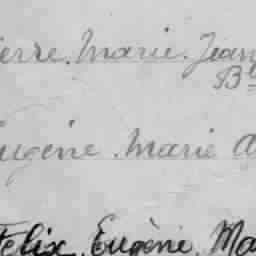 ierre. Marie. Jean
B
ugène. Marie
Félix. Eugène. Ma